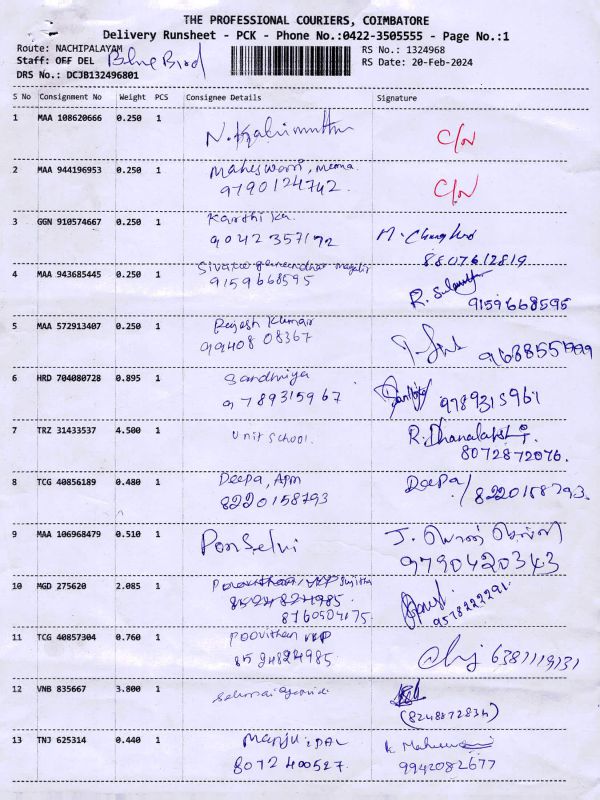 THE PROFESSIONAL COURIERS, COIMBATORE
Delivery Runsheet - PCK - Phone No.:0422-3505555 - Page No.:1
Route: NACHIPALAYAM
RS No.: 1324968
Staff: OFF DEL Blue Bird
RS Date: 20-Feb-2024
DRS No.: DCJB132496801
S No Consignment No Weight PCS Consignee Details Signature
1 MAA 108620666 0.250 1 C/N
2 MAA 944196953 0.250 1 Maheswari, Meena C/N
9790124742
3 GGN 910574667 0.250 1 Karthika
9042357192
8807612819
4 MAA 943685445 0.250 1
9159668595 9159668595
5 MAA 572913407 0.250 1 Rajesh Kumar
99408 08367
6 HRD 704080728 0.895 1 Sandhiya
9789315967 9789315967
7 TRZ 31433537 4.500 1 Unit School. R. Dhanalakshi
8072872076.
8 TCG 40856189 0.480 1 Deepa, Apm Deepa/
8220158793 8220158793.
9 MAA 106968479 0.510 1 PonSelvi
9790420343
10 MGD 275620 2.085 1 Sujitha
8760504175 9578222291
11 TCG 40857304 0.760 1 Poovithan VKP
8524824985 6381119131
12 VNB 835667 3.800 1
(8248872834)
13 TNJ 625314 0.440 1 Manju
8072400527. 9942082677